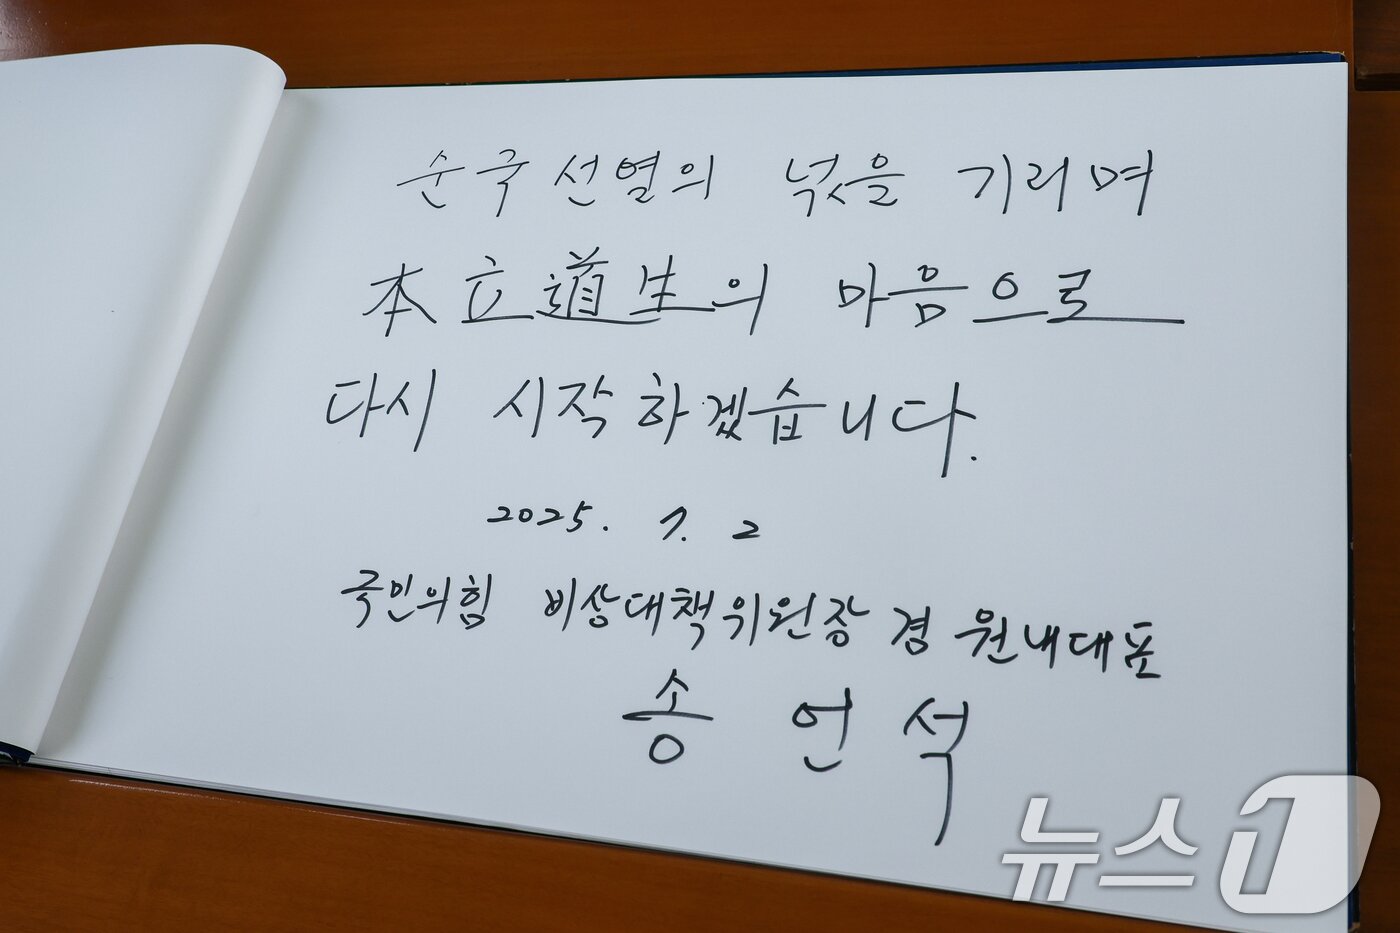 순국선열의 넋을 기리며
本立道生의 마음으로
다시 시작하겠습니다.
2025. 7. 2
국민의힘 비상대책위원장 겸 원내대표
송 언 석
뉴스1